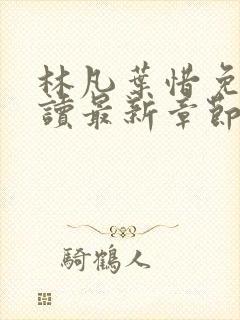 林凡葉惜免
讀最新章節
騎鶴人